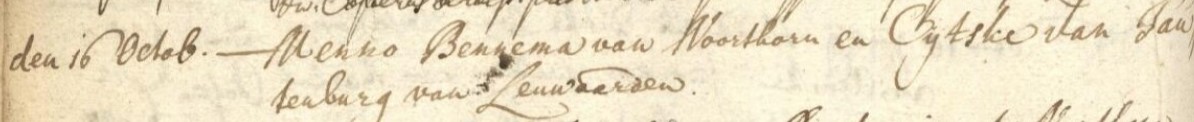 den 16 Octob. — Menno Bennema van Noorthorn en Cytske van Jau
tenburg van Leeuwaarden.